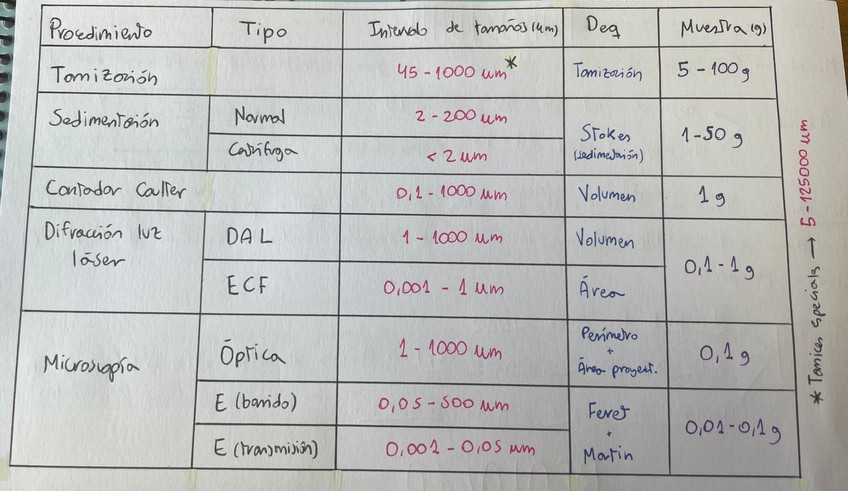 Procedimiento Tipo Intervalo de tamaños (um) Deq Muestra (g)
Tamización 45 - 1000 um* Tamización 5 - 100 g
Sedimentación Normal 2 - 200 um Stokes (sedimentación) 1 - 50 g
Centrífuga < 2 um
Contador Coulter 0,1 - 1000 um Volumen 1 g
Difracción luz láser DAL 1 - 1000 um Volumen 0,1 - 1 g
ECF 0,001 - 1 um Área
Microscopía Óptica 1 - 1000 um Perímetro + Área proyect. 0,1 g
E (barrido) 0,05 - 500 um Feret + Martin 0,01 - 0,1 g
E (transmisión) 0,001 - 0,05 um
* Tamices especiales → 5 - 125000 um